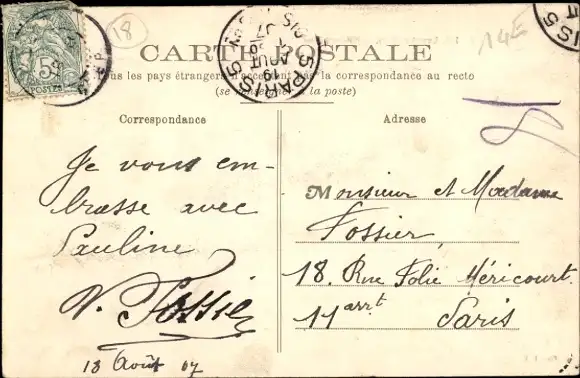 18
14E
CARTE POSTALE
Tous les pays étrangers n'acceptent pas la correspondance au recto
(se renseigner à la poste)
Correspondance
Adresse
Je vous em-
brasse avec
Pauline
V. Fossier
18 Août 07
Monsieur et Madame
Fossier
18. Rue Folie Méricourt
11 arrt
Paris
5
POSTES